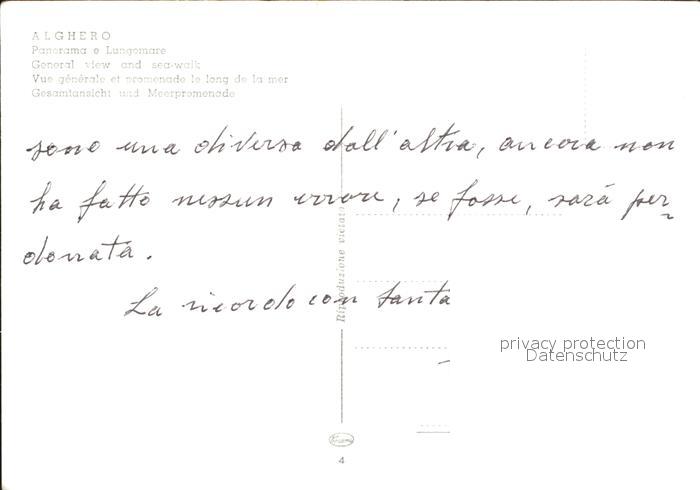 ALGHERO
Panorama e Lungomare
General view and sea-walk
Vue générale et promenade le long de la mer
Gesamtansicht und Meerpromenade
sono una diversa dall'altra, ancora non
ha fatto nessun errore, se fosse, sarà per
donata.
La ricordo con tanta
Riproduzione vietata
privacy protection
Datenschutz
4